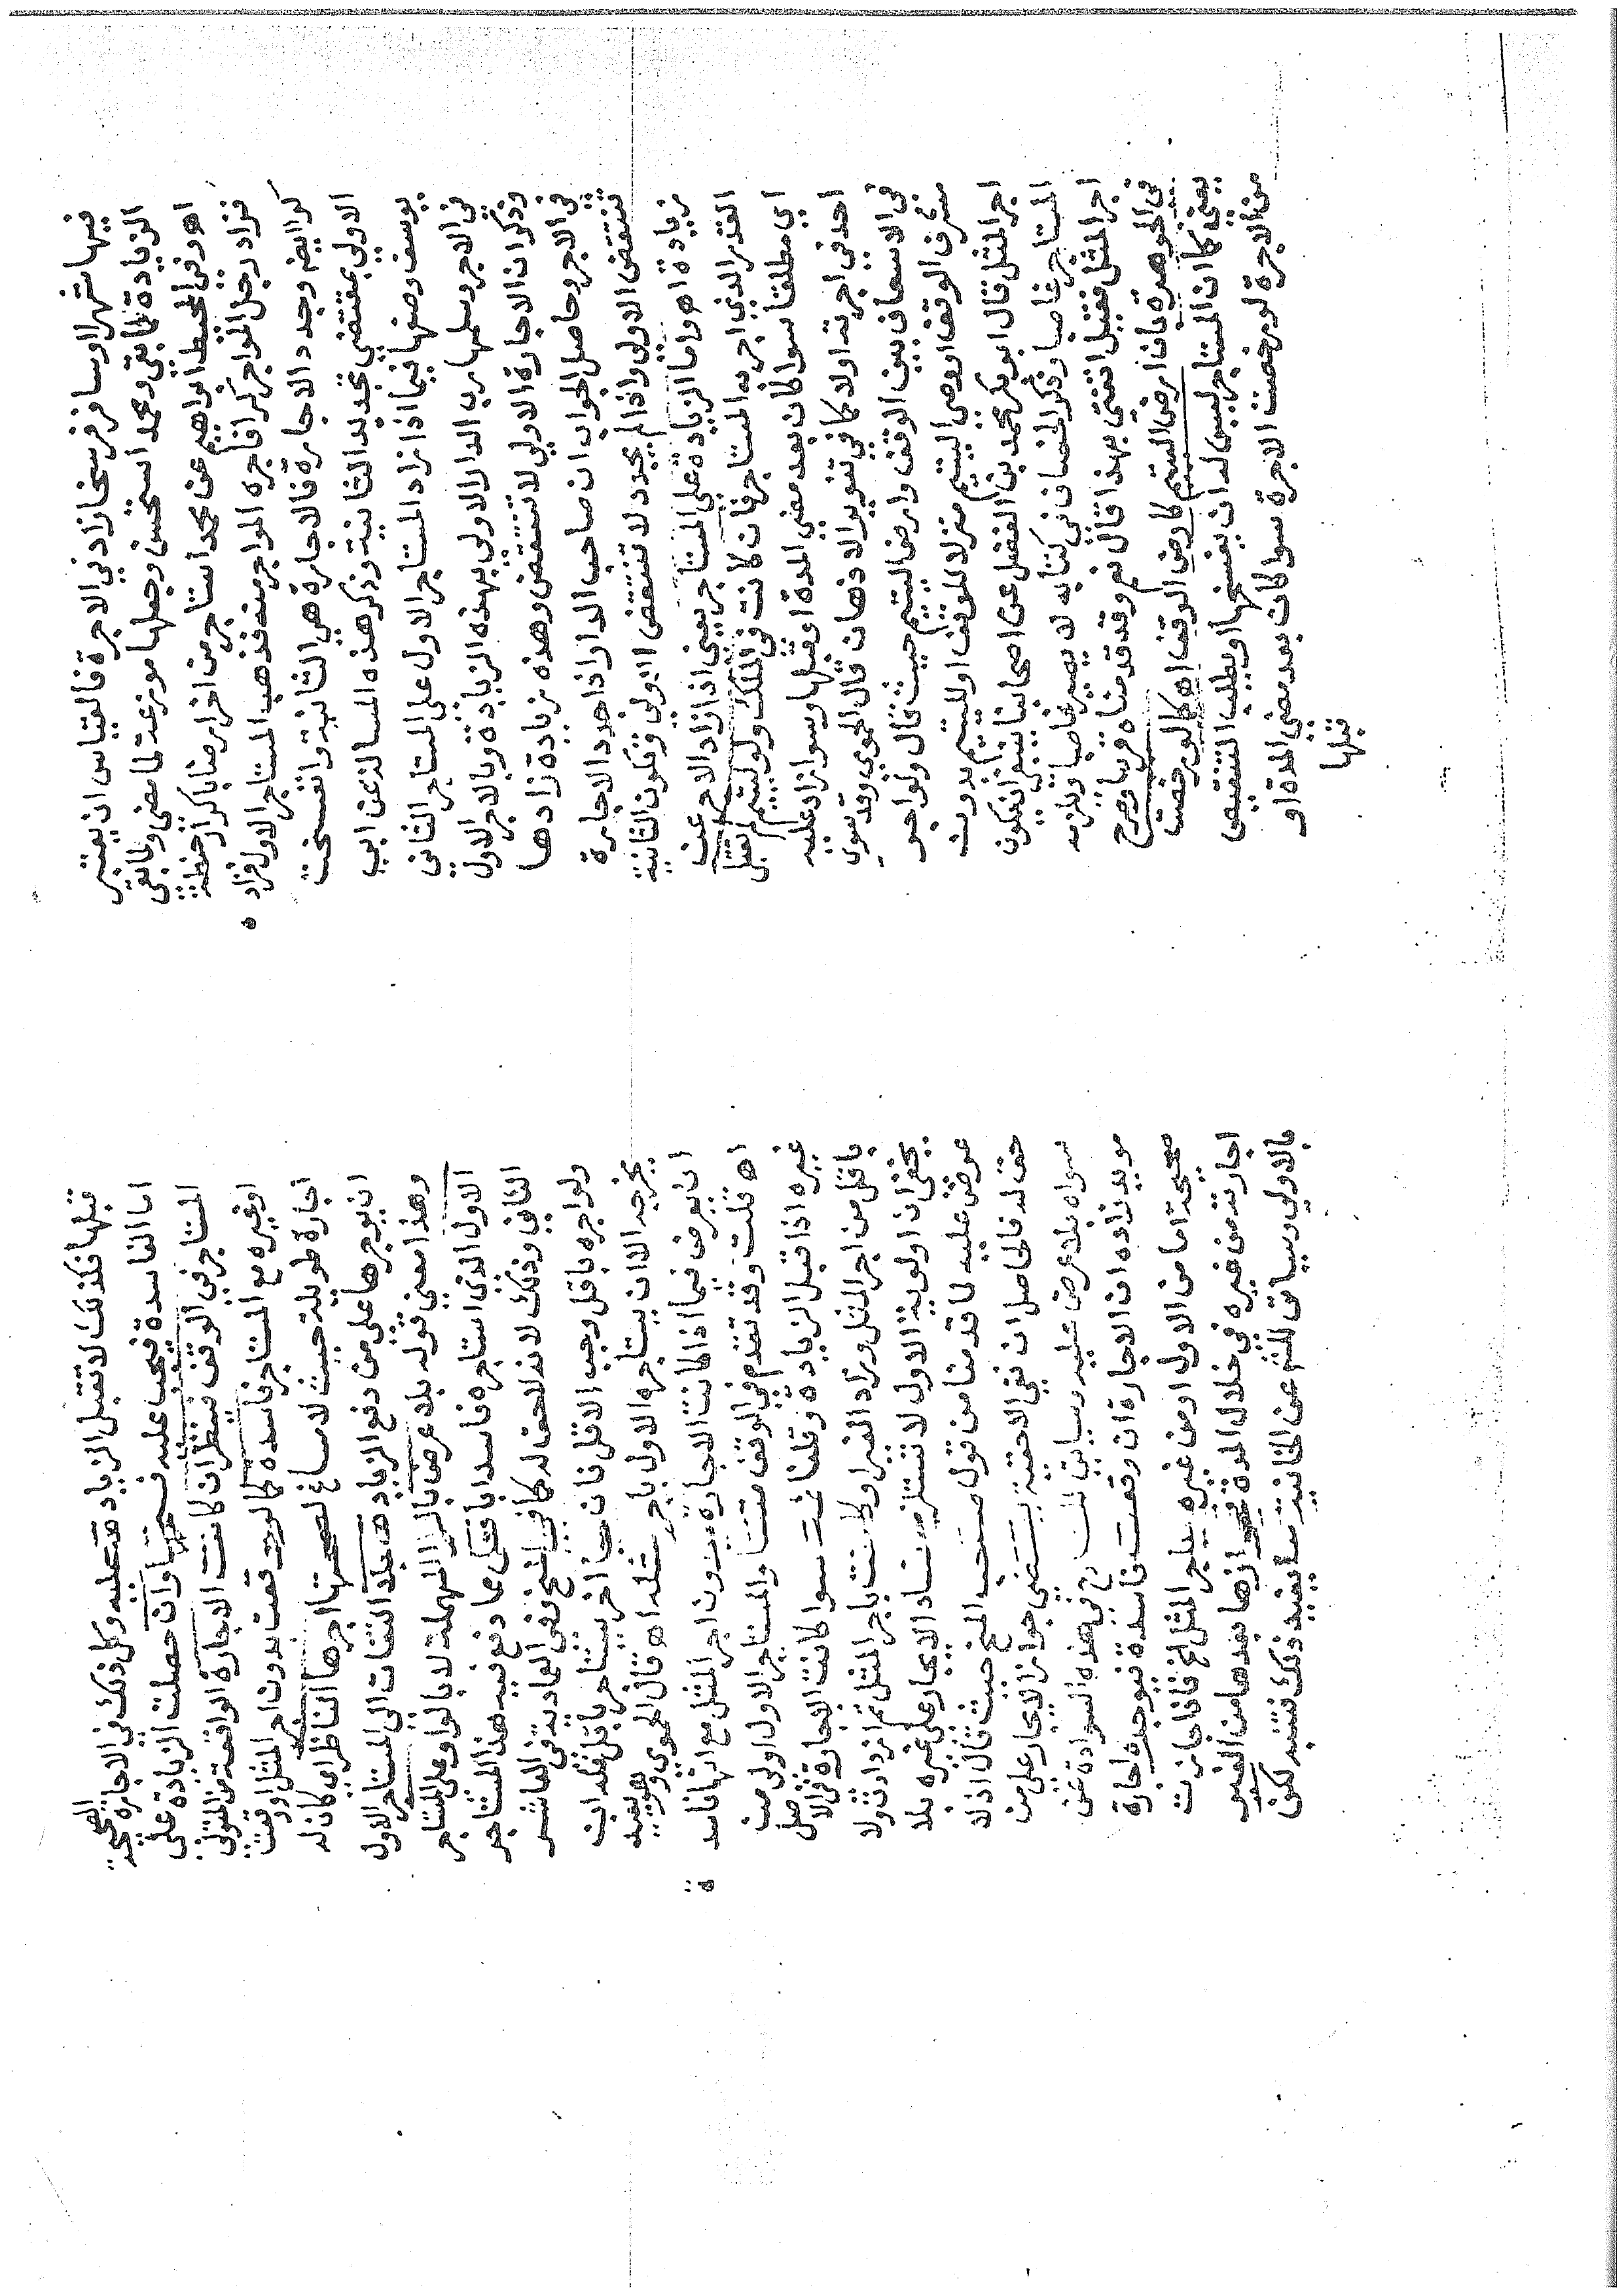 فيها شهرا وسافر فرسخا زاد في الاجرة فالقياس ان يعتبر
الزيادة لما بقي ومحمد استحسن وجعلها موزعة لما مضى ولما بقى
اهـ وفي المحيط ابراهيم عن محمد استاجر من اخر ارضا باكرار حنطة
فزاد رجل المواجر كرا فاجره المواجر منه فذهب المستاجر الاول فزاد
كرا ايضا وجدد الاجارة فالاجارة هي الثانية وانفسخت
الاولي بمقتضي تجديد الثانية وذكر هذه المسالة عن ابي
يوسف وضعها فيما اذا زاد المستاجر الاول على المستاجر الثاني
في الاجر وسلمها رب الدار الاولى بهذه الزيادة وبالاجر الاول
وذكر ان الاجارة الاولي لا تنتقض وهذه زيادة زادها
في الاجر وحاصل الجواب ان صاحب الدار اذا جدد الاجارة
تنتقض الاولى واذا لم يجدد لا تنتقض الاولى وتكون الثانية
زيادة اهـ واما الزيادة على المستاجر يعني اذا زاد الاجر عن
القدر الذي اجر به المستاجر فان كانت في الملك ولو ليتيم لم تقبل
اي مطلقا سوا كان بعد مضي المدة او قبلها وسوا زاد عليه
احد في اجرته اولا كما في تنوير الاذهان قال الحموي وقد سوى
في الاسعاف بين الوقف وارض اليتيم حيث قال ولو اجر
مشرف الوقف او وصي اليتيم منزلا للوقف او لليتيم بدون
اجر المثل قال ابو بكر محمد بن الفضل على اصحابنا ينبغي ان يكون
المستاجر غاصبا وذكر الخصاف في كتابه لا يصير غاصبا ويلزمه
اجر المثل فقيل اتفتي بهذا قال نعم وقد قدمناه قريبا وصرح
في الجوهرة بان ارض اليتيم كارض الوقف اهـ كما لو رخصت
يعني كما ان المستاجر ليس له ان يفسخها ويطلب التنقيص
من الاجرة لو رخصت الاجرة سوا كان بعد مضي المدة او
قبلها
قبلها فكذلك لا تقبل الزيادة عليه وكل ذلك في الاجارة الصحيحة
اما الفاسدة فيجب عليه فسخها وان حصلت الزيادة على
المستاجر في الوقف فينظر ان كانت الاجارة الواقعة من المتولي
او غيره مع المستاجر فاسدة كما لو وقعت بدون اجر المثل او وقعت
اجارة طويلة حيث لا مساغ لصحتها اجرها الناظر اي كان له
ان يوجرها على من دفع الزيادة بلا التفات الى المستاجر الاول
وهذا معنى قوله بلا عرض بالرا المهملة لا بالواو على المستاجر
الاول الذي استاجره فاسدا بافضل مما دفع فيه هذا المستاجر
الثاني وذلك لانه لا حق له كما في المنح ففي العمادية في العاشر
ولو اجره باقل وجب الاقل فان جا اخر يستاجر باقل فله ان
يخرجه الا ان يستاجره الاول باجر مثله اهـ قال الحموي وهو يفيد
ان يعرض فيما اذا كانت الاجارة بدون اجر المثل مع انها فاسد
اهـ قلت وقد تقدم في الوقف متنا والمستاجر الاول اولى من
غيره اذا قبل الزيادة وقلنا ثمة سوا كانت الاجارة في الاصل
باقل من اجر المثل وزاد الغير او كانت باجر المثل ثم ازدادت ولا
يخفى ان اولوية الاول لا تستلزم فساد الايجار على غيره بلا
عرض عليه لما قدمنا من قول صاحب المنح حيث قال اذ لا
حق له فالحاصل ان نفي الاحقية يقتضي جواز الايجار على من
سواه بلا عرض عليه وسياتي للشارح في هذه السوادة عن
مويد زاده ان الاجارة ان وقعت فاسدة فيوجره اجارة
صحيحة اما من الاول او من غيره باجر المثل الخ فافاد جازت
اجارته من غيره في خلال المدة فجوازها بعدها من الغير
بالاولي وسياتي للشم عن الخانية ما يفيد ذلك فتنبه لكن